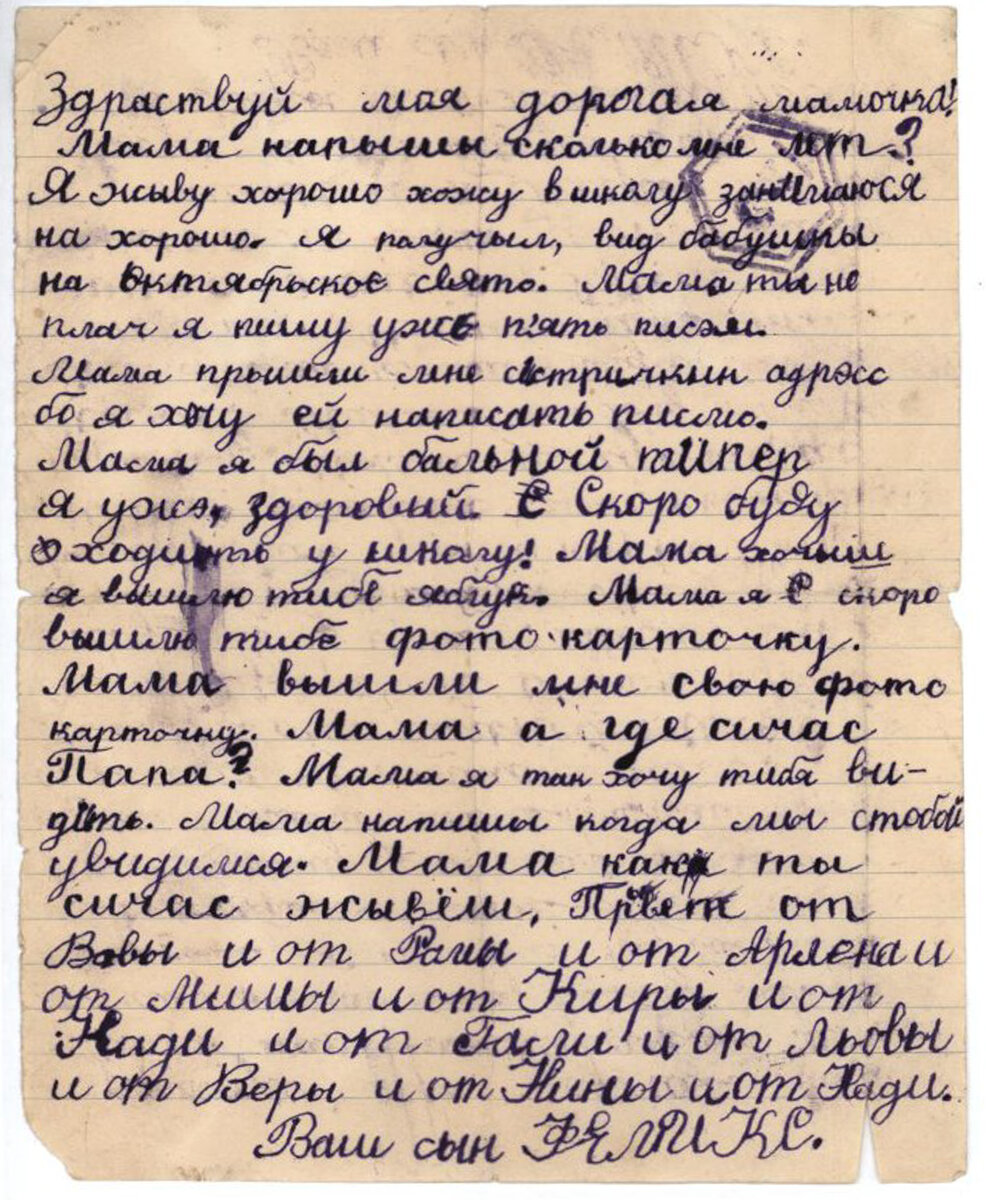 Здраствуй мая дорогая мамочка!
Мама напышы сколько мне лет?
Я жыву харошо хожу в школу занимаюся
на хорошо. Я получыл, вид бабушты
на Октябрьскоє свято. Мама ты не
плач я пишу ужє п'ять писэм.
Мама прышли мне систричкин адрэс
бо я хочу ей написать писмо.
Мама я был бальной типер
я ужэ, здоровый. Скоро буду
ходить у школу! Мама хочиш
я вышлю тибе яблук. Мама я скоро
вышлю тибе фото-карточку.
Мама вышли мне свою фото
карточку. Мама а где сичас
Папа? Мама я так хочу тибя ви-
дить. Мама напишы когда мы стобой
увидимся. Мама как ты
сичас жывёш. Прывет от
Вовы и от Ромы и от Арлєна и
от Мишы и от Киры и от
Нади и от Гали и от Льовы
и от Веры и от Нины и от Нади.
Ваш сын ФЕЛИКС.